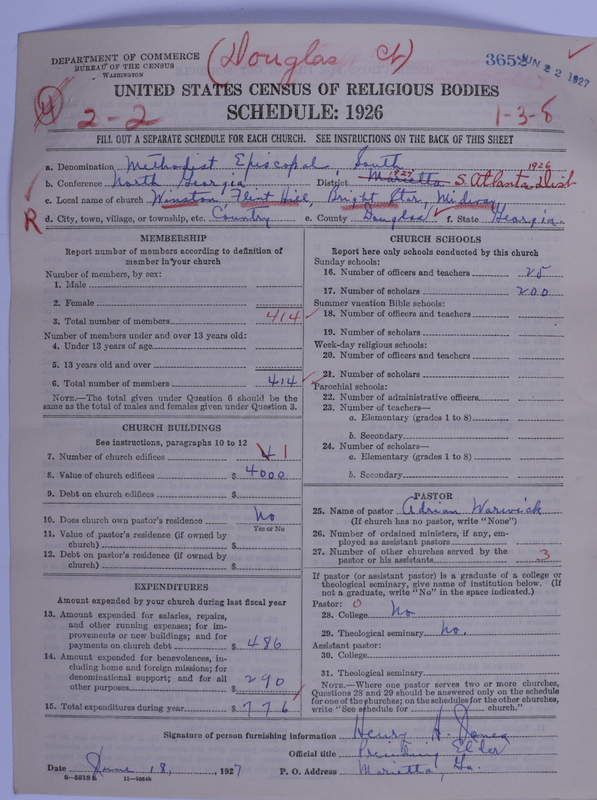 (Douglas Ct)
DEPARTMENT OF COMMERCE
BUREAU OF THE CENSUS
WASHINGTON
3652
JUN 22 1927
UNITED STATES CENSUS OF RELIGIOUS BODIES
SCHEDULE: 1926
2-2
1-3-8
FILL OUT A SEPARATE SCHEDULE FOR EACH CHURCH. SEE INSTRUCTIONS ON THE BACK OF THIS SHEET
a. Denomination Methodist Episcopal, South
b. Conference North Georgia District Marietta 1927 S. Atlanta Dist 1926
c. Local name of church Winston, Flint Hill, Bright Star, Midway
R
d. City, town, village, or township, etc. Country e. County Douglas f. State Georgia.
MEMBERSHIP
Report number of members according to definition of
member in your church
Number of members, by sex:
1. Male
2. Female
3. Total number of members 414
Number of members under and over 13 years old:
4. Under 13 years of age
5. 13 years old and over
6. Total number of members 414
NOTE.—The total given under Question 6 should be the
same as the total of males and females given under Question 3.
CHURCH BUILDINGS
See instructions, paragraphs 10 to 12
7. Number of church edifices 4 1
8. Value of church edifices $ 4000
9. Debt on church edifices $
10. Does church own pastor's residence No
Yes or No
11. Value of pastor's residence (if owned by
church) $
12. Debt on pastor's residence (if owned by
church) $
EXPENDITURES
Amount expended by your church during last fiscal year
13. Amount expended for salaries, repairs,
and other running expenses; for im-
provements or new buildings; and for
payments on church debt $ 486
14. Amount expended for benevolences, in-
cluding home and foreign missions; for
denominational support; and for all
other purposes $ 290
15. Total expenditures during year $ 776
CHURCH SCHOOLS
Report here only schools conducted by this church
Sunday schools:
16. Number of officers and teachers 25
17. Number of scholars 200
Summer vacation Bible schools:
18. Number of officers and teachers
19. Number of scholars
Week-day religious schools:
20. Number of officers and teachers
21. Number of scholars
Parochial schools:
22. Number of administrative officers
23. Number of teachers—
a. Elementary (grades 1 to 8)
b. Secondary
24. Number of scholars—
a. Elementary (grades 1 to 8)
b. Secondary
PASTOR
25. Name of pastor Adrian Warwick
(If church has no pastor, write "None")
26. Number of ordained ministers, if any, em-
ployed as assistant pastors
27. Number of other churches served by the
pastor or his assistants 3
If pastor (or assistant pastor) is a graduate of a college or
theological seminary, give name of institution below. (If
not a graduate, write "No" in the space indicated.)
Pastor: 0
28. College No
29. Theological seminary No.
Assistant pastor:
30. College
31. Theological seminary
NOTE.—Where one pastor serves two or more churches,
Questions 28 and 29 should be answered only on the schedule
for one of the churches; on the schedules for the other churches,
write "See schedule for church."
Signature of person furnishing information Henry H. Jones
Official title Presiding Elder
Date June 18, 1927 P. O. Address Marietta, Ga.